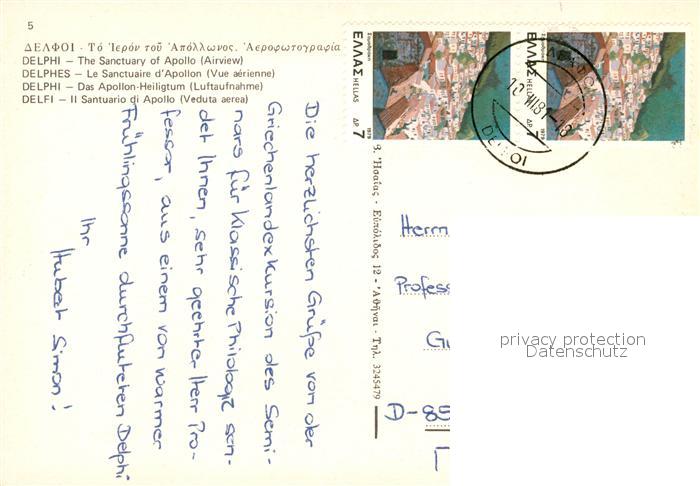 5
ΔΕΛΦΟΙ - Τό Ἱερόν τοῦ Ἀπόλλωνος. Ἀεροφωτογραφία
DELPHI — The Sanctuary of Apollo (Airview)
DELPHES — Le Sanctuaire d'Apollon (Vue aérienne)
DELPHI — Das Apollon-Heiligtum (Luftaufnahme)
DELFI — Il Santuario di Apollo (Veduta aerea)
Die herzlichsten Grüße von der
Griechenlandexkursion des Semi-
nars für Klassische Philologie sen-
det Ihnen, sehr geehrter Herr Pro-
fessor, aus einem von warmer
Frühlingssonne durchfluteten Delphi
Ihr
Hubert Simon!
Ἠσαΐας - Εὐπόλιδος 12 - Ἀθῆναι - Τηλ. 3245479
ΕΛΛΑΣ HELLAS
1979
ΔΡ. 7
ΕΛΛΑΣ HELLAS
1979
ΔΡ. 7
DELFOI
Herrn
Profess
Gu
D-85
privacy protection
Datenschutz